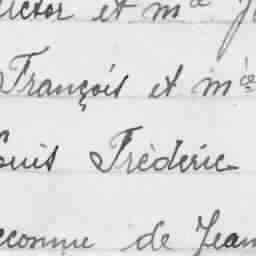 Victor et Mce J
François et Mce
Louis Fréderic
reconnu de Jean